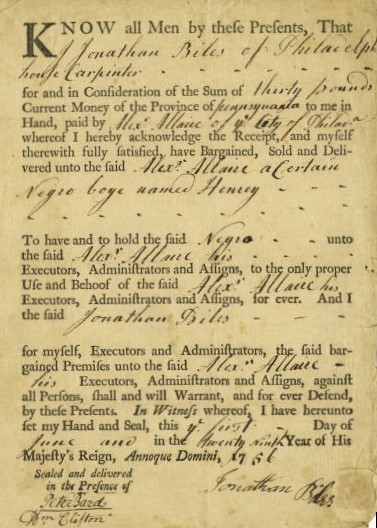 KNOW all Men by these Presents, That
I Jonathan Biles of Philadelph
house Carpinter
for and in Consideration of the Sum of thirty pounds
Current Money of the Province of pennsyvania to me in
Hand, paid by Alexr. Allaire of ye Cety of Philaa
whereof I hereby acknowledge the Receipt, and myself
therewith fully satisfied, have Bargained, Sold and Deli-
vered unto the said Alexr. Allaire a Certain
Negro boye named Henrey
To have and to hold the said Negro - - unto
the said Alexr. Allaire his
Executors, Administrators and Assigns, to the only proper
Use and Behoof of the said Alexr. Allaire his
Executors, Administrators and Assigns, for ever. And I
the said Jonathan Biles
for myself, Executors and Administrators, the said bar-
gained Premises unto the said Alexr. Allaire -
his Executors, Administrators and Assigns, against
all Persons, shall and will Warrant, and for ever Defend,
by these Presents. In Witness whereof, I have hereunto
set my Hand and Seal, this ye first Day of
June and in the twenty ninth Year of His
Majesty's Reign, Annoque Domini, 1756
Sealed and delivered
in the Presence of
Petr Bard
Wm Clifton
Jonathan Biles